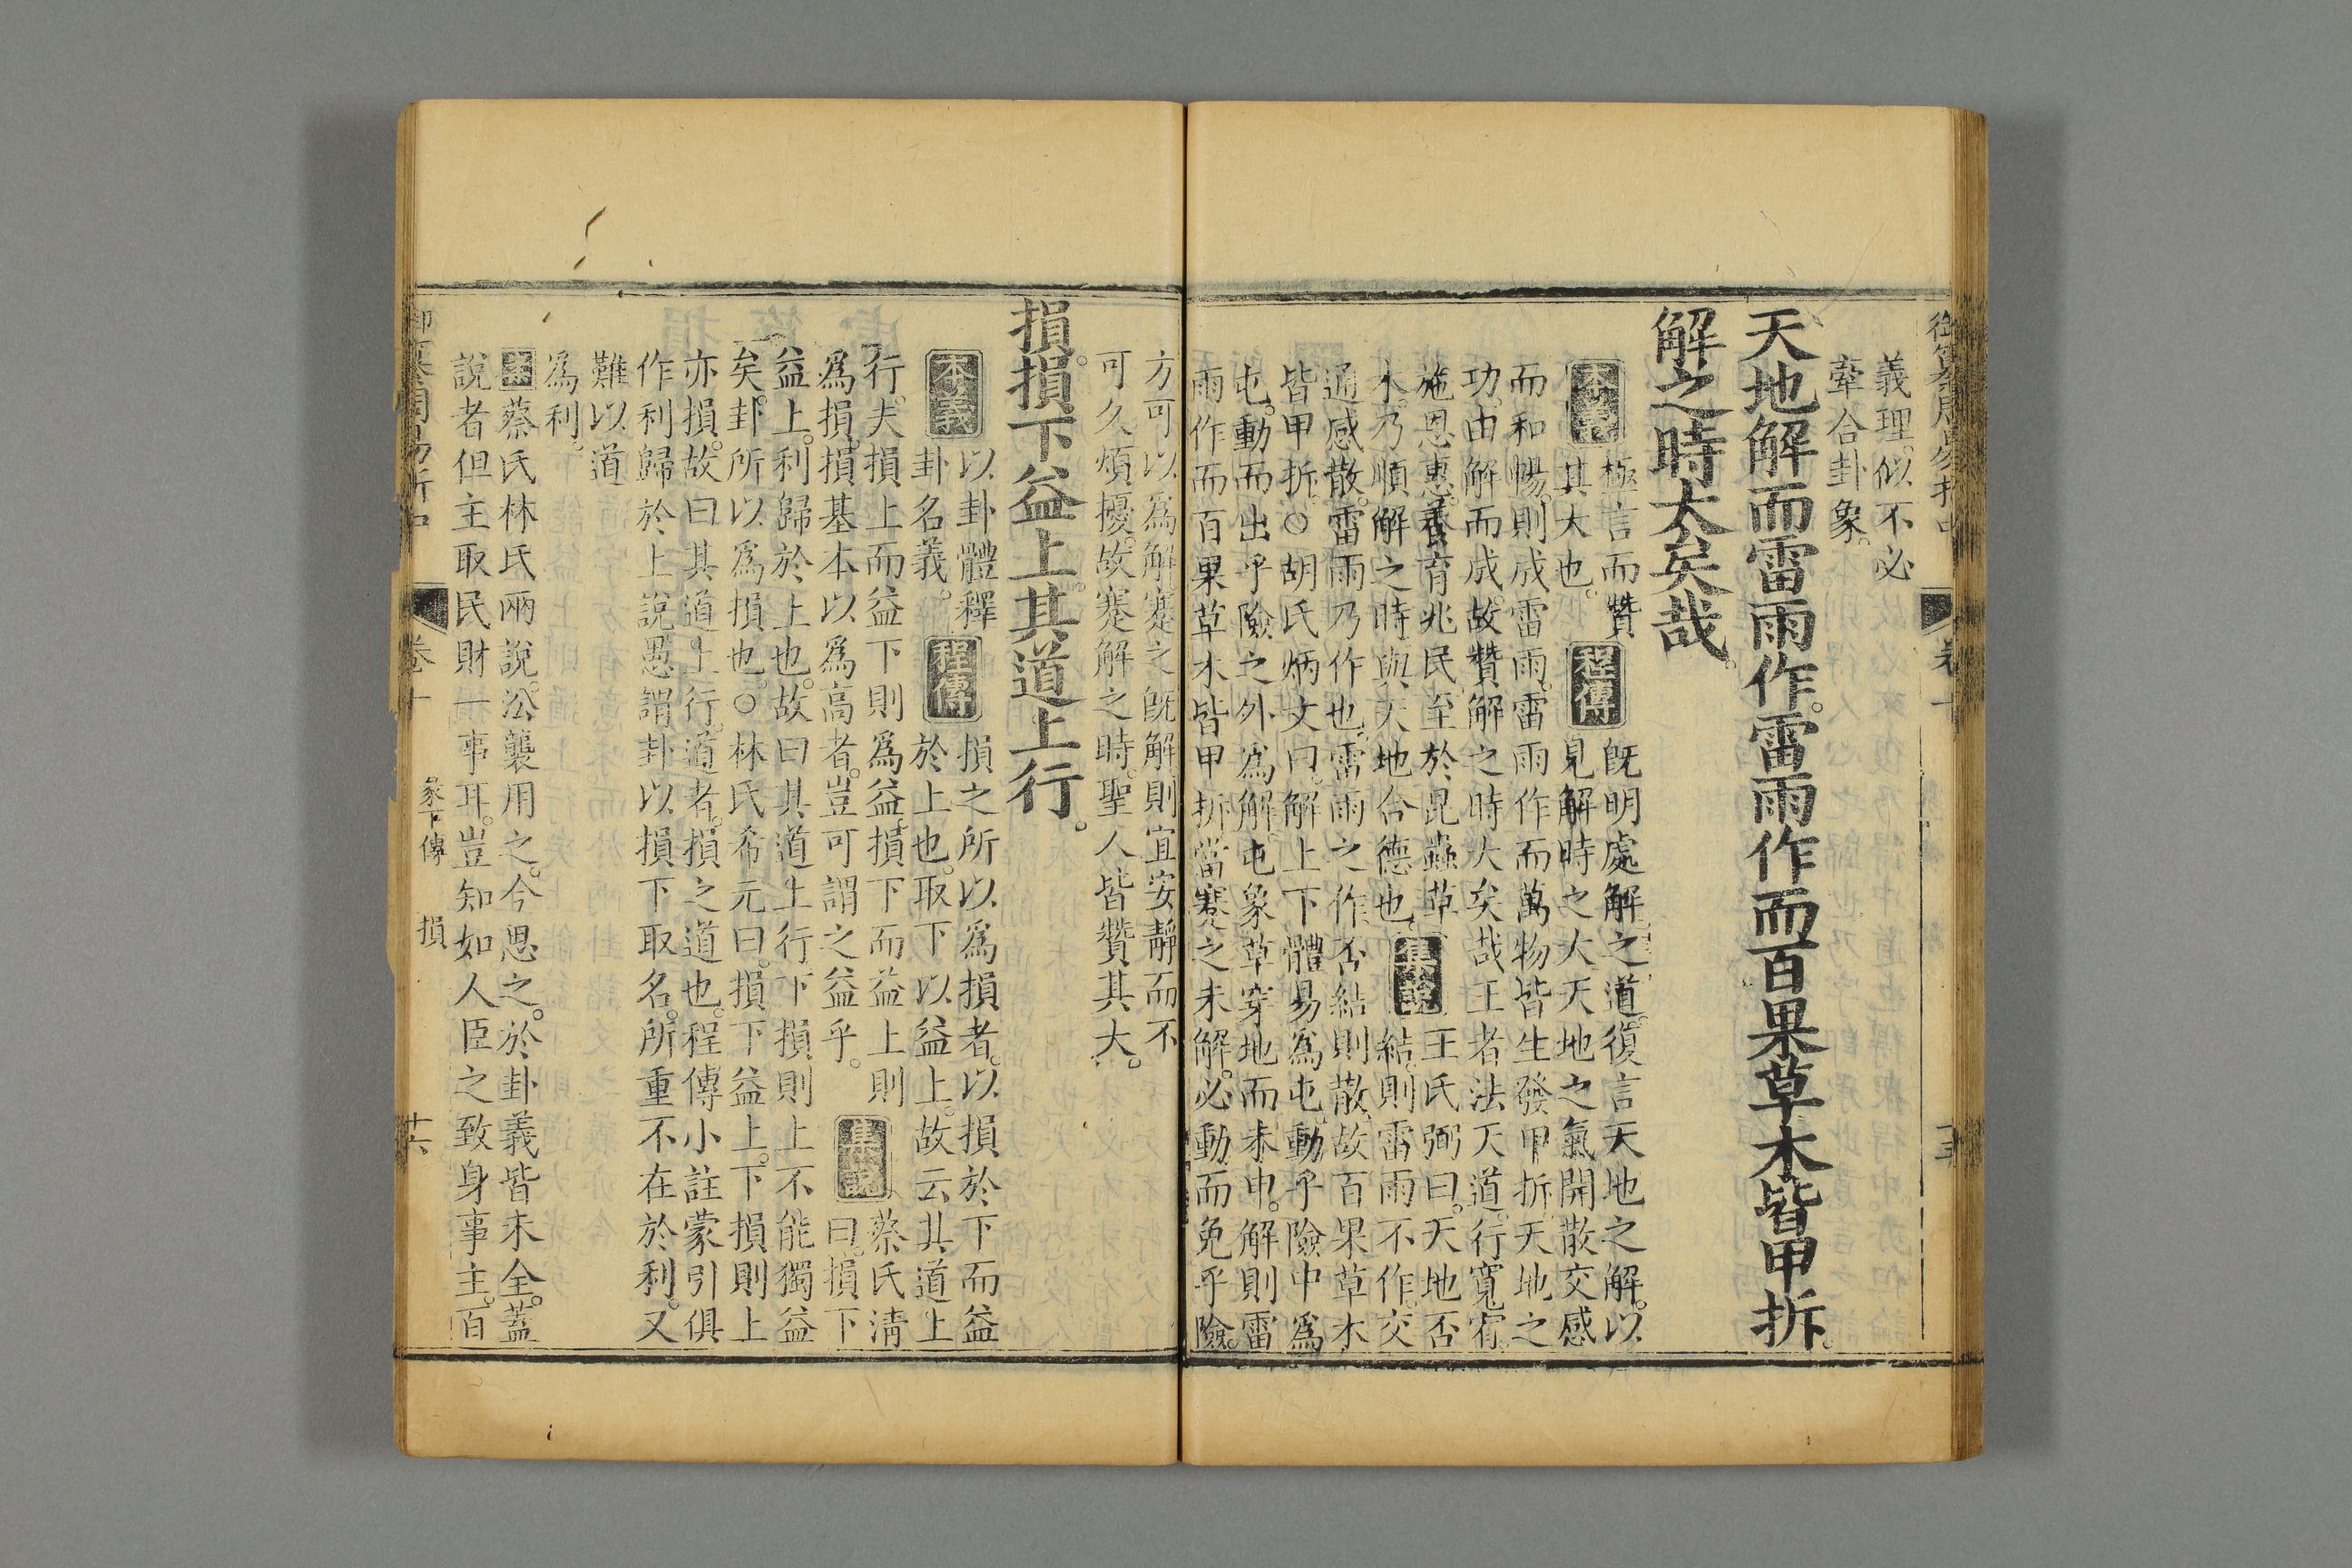 義理。似不必
牽合卦象。
天地解而雷雨作。雷雨作而百果草木皆甲拆。
解之時大矣哉。
本義 極言而贊 程傳 既明處解之道。復言天地之解。以
其大也。 見解時之大天地之氣開散交感
而和暢。則成雷雨。雷雨作而萬物皆生發甲拆。天地之
功。由解而成。故贊解之時大矣哉王者法天道。行寬宥。
施恩惠。養育兆民至於昆蟲草 集說 王氏弼曰。天地否
木。乃順解之時。與天地合德也。 結。則雷雨不作。交
通感散。雷雨乃作也。雷雨之作。否結則散。故百果草木
皆甲拆。○胡氏炳文曰。解上下體易爲屯。動乎險中爲
屯。動而出乎險之外爲解。屯象草穿地而未申。解則雷
雨作而百果草木皆甲拆。當蹇之未解。必動而免乎險。
方可以爲解。蹇之既解。則宜安靜而不
可久煩擾。故蹇解之時。聖人皆贊其大。
損。損下益上。其道上行。
本義 以卦體釋 程傳 損之所以爲損者。以損於下而益
卦名義。 於上也。取下以益上。故云其道上
行。夫損上而益下則爲益。損下而益上則 集說 蔡氏淸
爲損。損基本以爲高者。豈可謂之益乎。 曰。損下
益上。利歸於上也。故曰其道上行。下損則上不能獨益
矣。卦所以爲損也。○林氏希元曰。損下益上。下損則上
亦損。故曰其道上行。道者。損之道也。程傳小註蒙引俱
作利歸於上說。愚謂卦以損下取名。所重不在於利。又
難以道
爲利。
案 蔡氏林氏兩說。㳂襲用之。今思之。於卦義皆未全。蓋
說者但主取民財一事耳。豈知如人臣之致身事主。百
卷十
彖下傳
損
十六